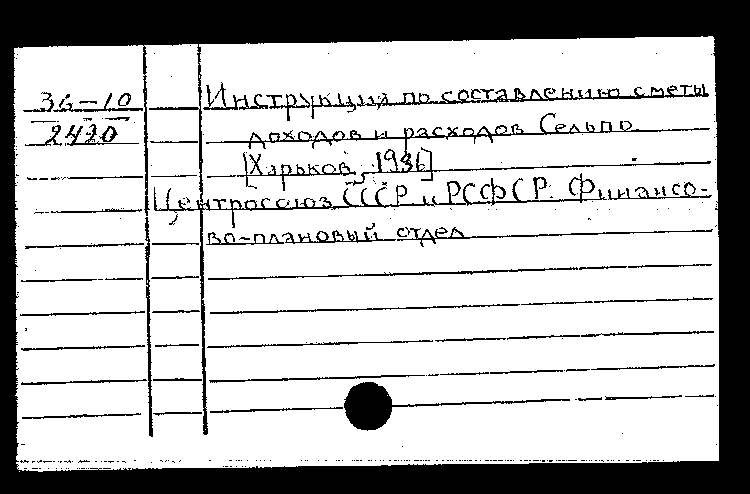 36-10
2420
Инструкция по составлению сметы
доходов и расходов Сельпо.
[Харьков, 1936]
Центросоюз СССР и РСФСР. Финансо-
во-плановый отдел